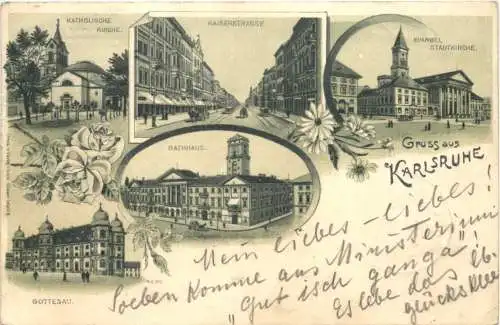 KATHOLISCHE
KIRCHE.
KAISERSTRASSE
EVANGEL.
STADTKIRCHE.
RATHHAUS.
GRUSS AUS
KARLSRUHE
GOTTESAU.
Mein liebes - liebes!
Soeben komme aus Ministerium
"Gut isch ganga"!
Es lebe das